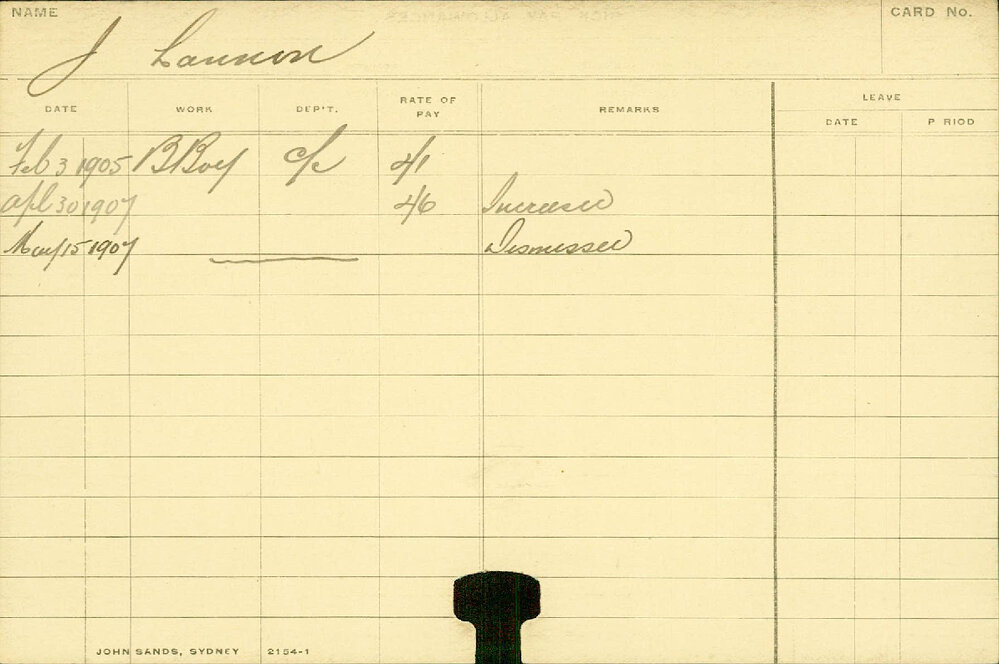 NAME
CARD No.
J Lannon
DATE WORK DEP'T. RATE OF PAY REMARKS LEAVE
DATE P RIOD
Feb 3 1905 BBoy c/c 4/1
Apl 30 1907 4/6 Increased
May 15 1907 Dismissed
JOHN SANDS, SYDNEY 2154-1